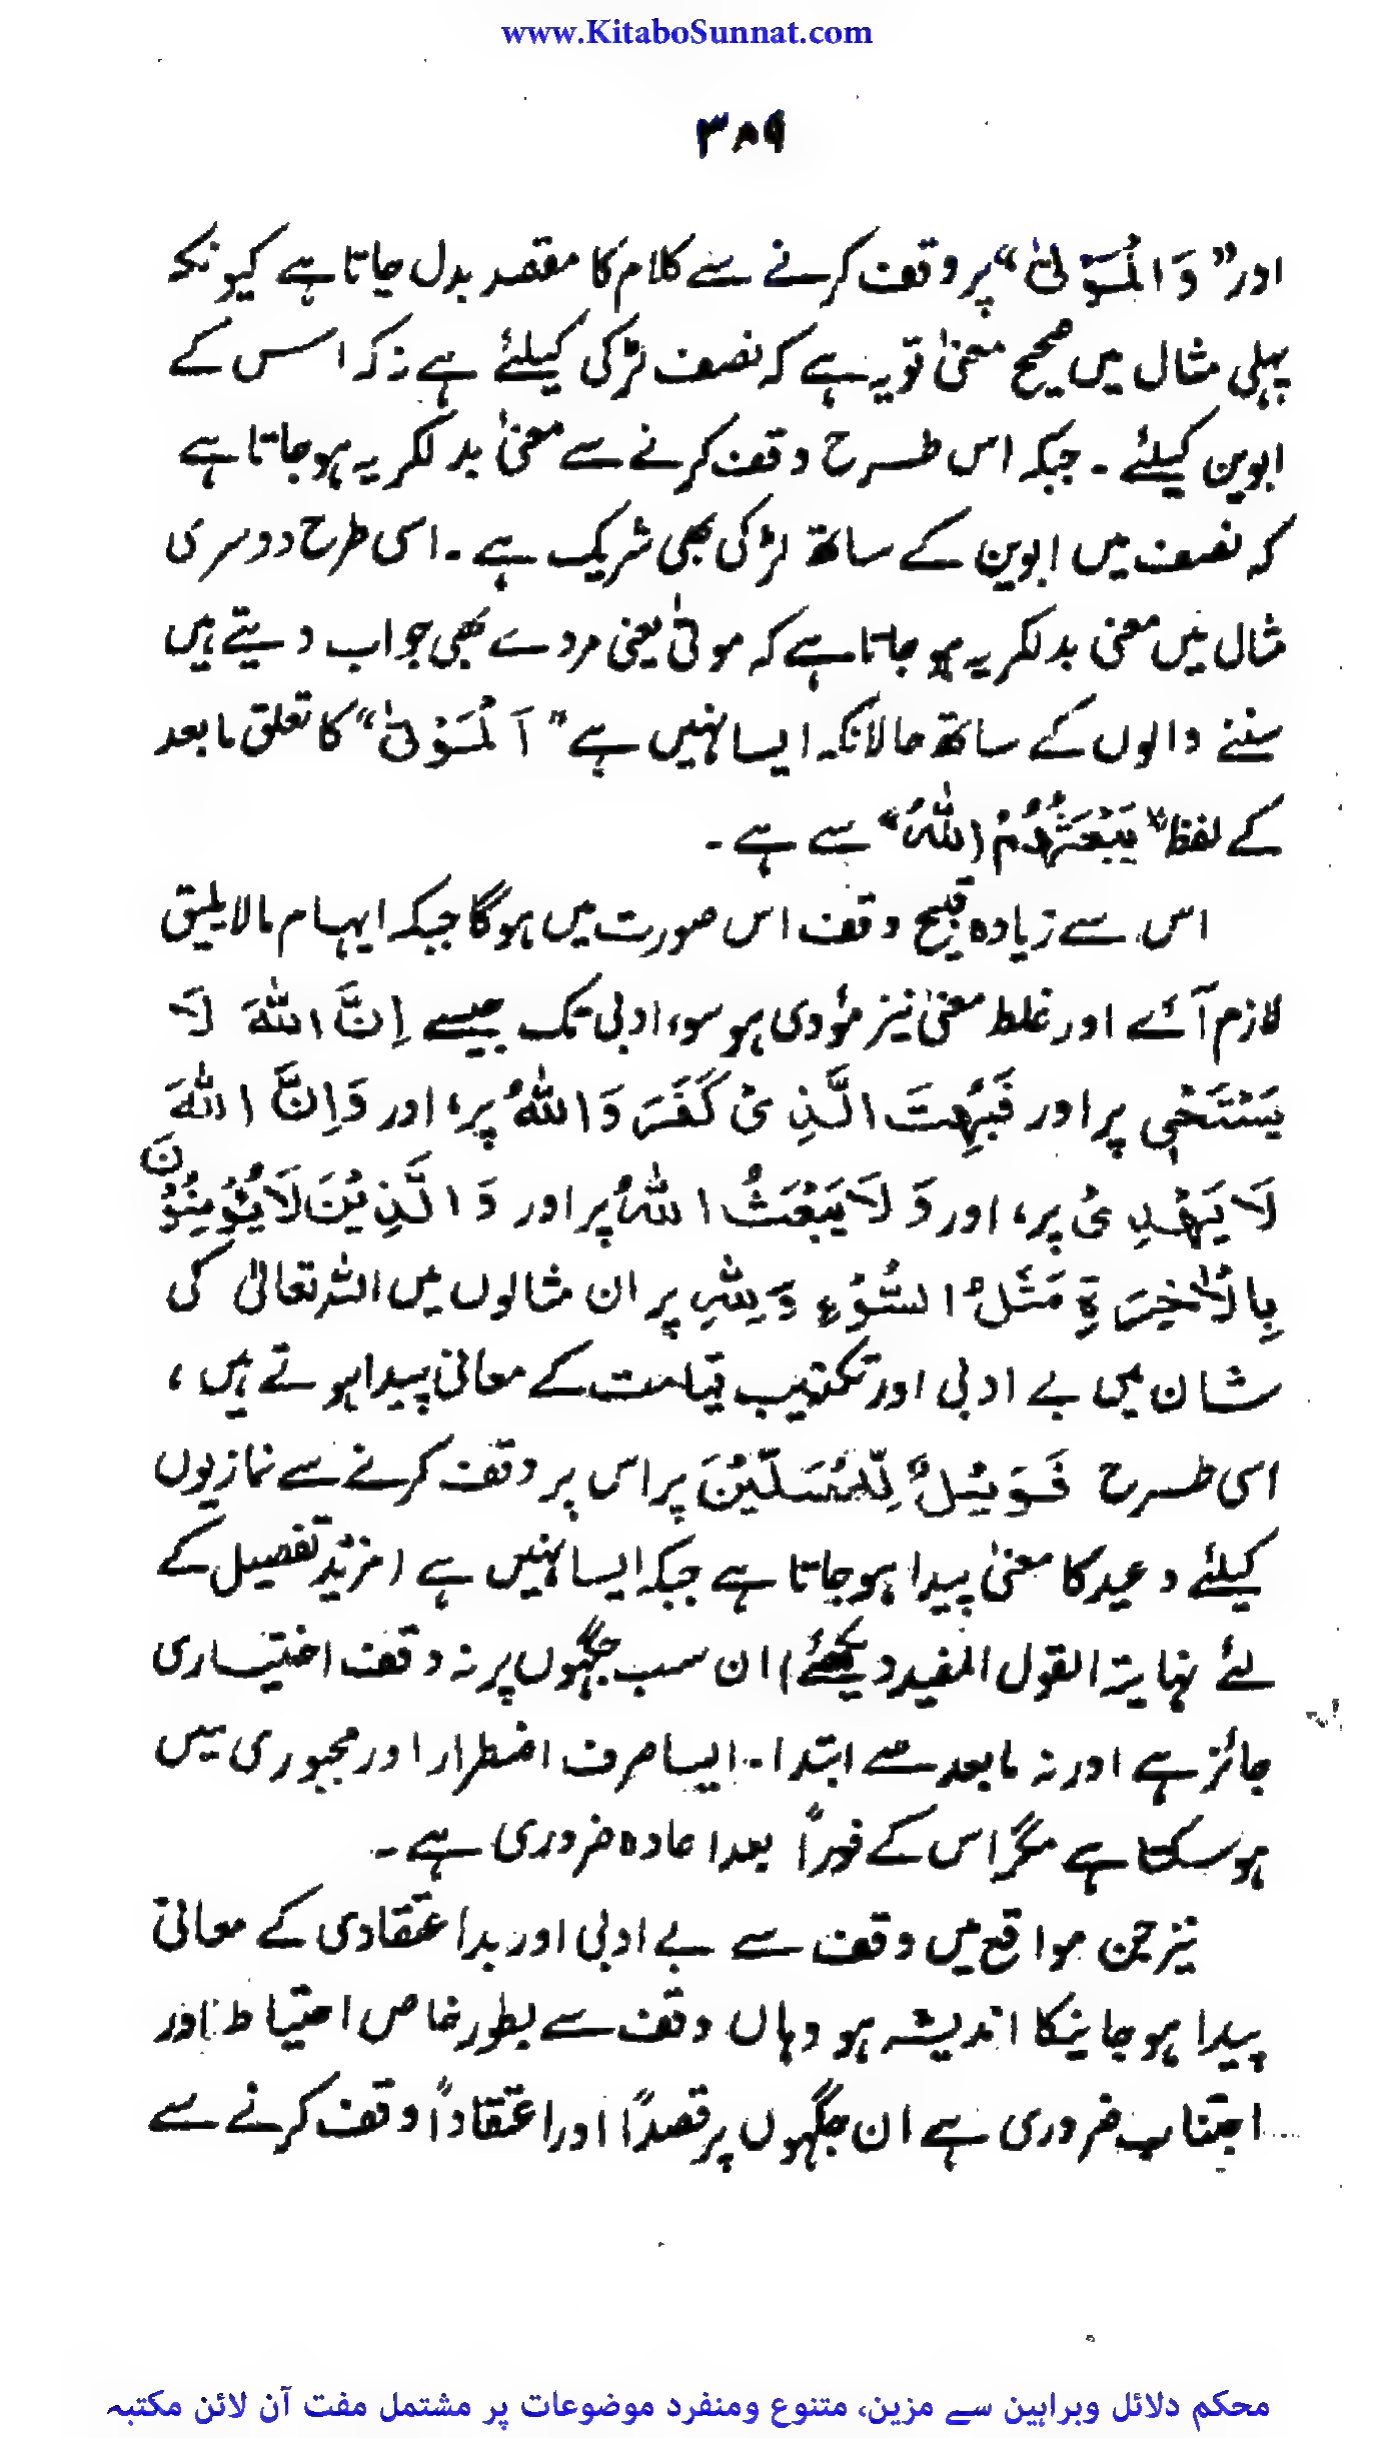 www.KitaboSunnat.com
۳۸۹
اور ”وَالْمَوْتٰی“ پر وقف کرنے سے کلام کا مقصد بدل جاتا ہے کیونکہ
پہلی مثال میں صحیح معنیٰ تو یہ ہے کہ نصف لڑکی کیلئے ہے نہ کہ اس کے
ابوین کیلئے ۔ جبکہ اس طرح وقف کرنے سے معنیٰ بدلکر یہ ہو جاتا ہے
کہ نصف میں ابوین کے ساتھ لڑکی بھی شریک ہے ۔ اسی طرح دوسری
مثال میں معنی بدلکر یہ ہو جاتا ہے کہ موتیٰ یعنی مردے بھی جواب دیتے ہیں
سننے والوں کے ساتھ حالانکہ ایسا نہیں ہے ”اَلْمَوْتیٰ“ کا تعلق مابعد
کے لفظ ”یَبْعَثُہُمُ اللّٰہُ“ سے ہے ۔
اس سے زیادہ قبیح وقف اس صورت میں ہوگا جبکہ ایہام مالا یلیق
لازم آئے اور غلط معنیٰ نیز مؤدی ہو سوء ادبی تک جیسے اِنَّ اللّٰہَ لَا
یَسْتَحْیٖ پر اور فَبُہِتَ الَّذِیْ کَفَرَ وَاللّٰہُ پر، اور وَاِنَّ اللّٰہَ
لَا یَہْدِیْ پر، اور وَلَا یَبْعَثُ اللّٰہُ پر اور وَالَّذِیْنَ لَا یُؤْمِنُوْنَ
بِالْاٰخِرَۃِ مَثَلُ السَّوْءِ وَلِلّٰہِ پر ان مثالوں میں اللہ تعالیٰ کی
شان میں بے ادبی اور تکذیب قیامت کے معانی پیدا ہوتے ہیں ،
اسی طرح فَوَیْلٌ لِّلْمُصَلِّیْنَ پر اس پر وقف کرنے سے نمازیوں
کیلئے وعید کا معنیٰ پیدا ہو جاتا ہے جبکہ ایسا نہیں ہے (مزید تفصیل کے
لئے نہایۃ القول المفید دیکھئے) ان سب جگہوں پر نہ وقف اختیاری
جائز ہے اور نہ مابعد سے ابتدا ۔ ایسا صرف اضطرار اور مجبوری میں
ہو سکتا ہے مگر اس کے فوراً بعد اعادہ ضروری ہے ۔
نیز جن مواقع میں وقف سے بے ادبی اور بد اعتقادی کے معانی
پیدا ہو جانیکا اندیشہ ہو وہاں وقف سے بطور خاص احتیاط اور
اجتناب ضروری ہے ان جگہوں پر قصداً اور اعتقاداً وقف کرنے سے
محکم دلائل وبراہین سے مزین، متنوع ومنفرد موضوعات پر مشتمل مفت آن لائن مکتبہ